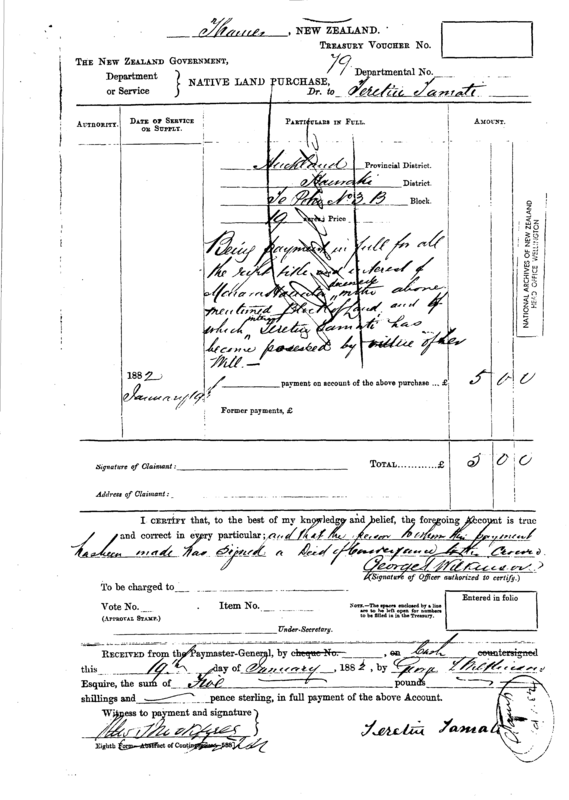 Thames, NEW ZEALAND.
TREASURY VOUCHER NO.
THE NEW ZEALAND GOVERNMENT,
79 Departmental No.
Department or Service } NATIVE LAND PURCHASE,
Dr. to Teretiu Tamati
AUTHORITY. DATE OF SERVICE OR SUPPLY. PARTICULARS IN FULL. AMOUNT.
Auckland Provincial District.
Hauraki District.
Te No 3 B Block.
Price
Being payment in full for all
the right title and interest of
deceased
in the above
mentioned Block of Land and of
which interest Teretiu Tamati has
become possessed by virtue of her
Will. —
1882
January 19th
payment on account of the above purchase ... £ 5 0 0
Former payments, £
Signature of Claimant: TOTAL............£ 5 0 0
Address of Claimant:
I CERTIFY that, to the best of my knowledge and belief, the foregoing Account is true
and correct in every particular; and that the person to whom this payment
has been made has signed a Deed of Conveyance to the Crown.
George Wilkinson
(Signature of Officer authorized to certify.)
To be charged to
Entered in folio
Vote No. Item No.
NOTE.—The spaces enclosed by a line are to be left open for numbers to be filled in in the Treasury.
(APPROVAL STAMP.)
Under-Secretary.
RECEIVED from the Paymaster-General, by cheque No. , on Cash countersigned
this 19th day of January, 1882, by George T Wilkinson
Esquire, the sum of Five pounds
shillings and pence sterling, in full payment of the above Account.
Witness to payment and signature }
Teretiu Tamati
Eighth Form—Abstract of
NATIONAL ARCHIVES OF NEW ZEALAND
HEAD OFFICE WELLINGTON